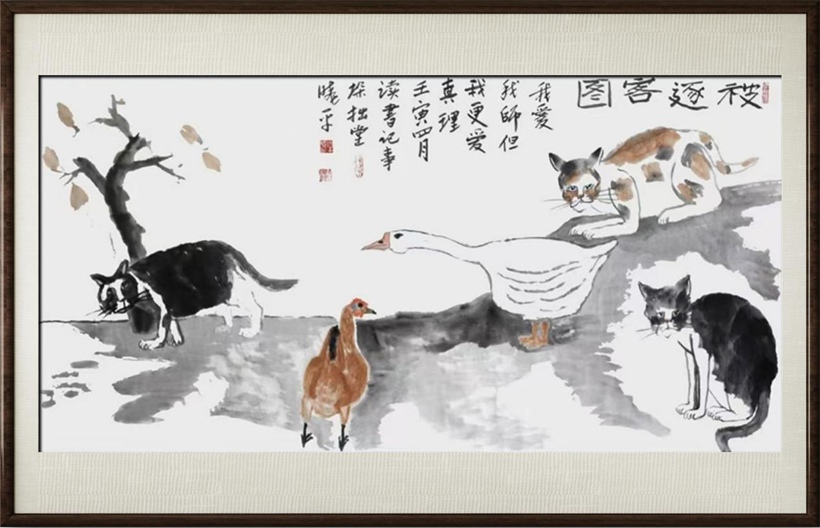 被逐客图
我爱
我師但
我更爱
真理
壬寅四月
读書记事
拙堂
晓平